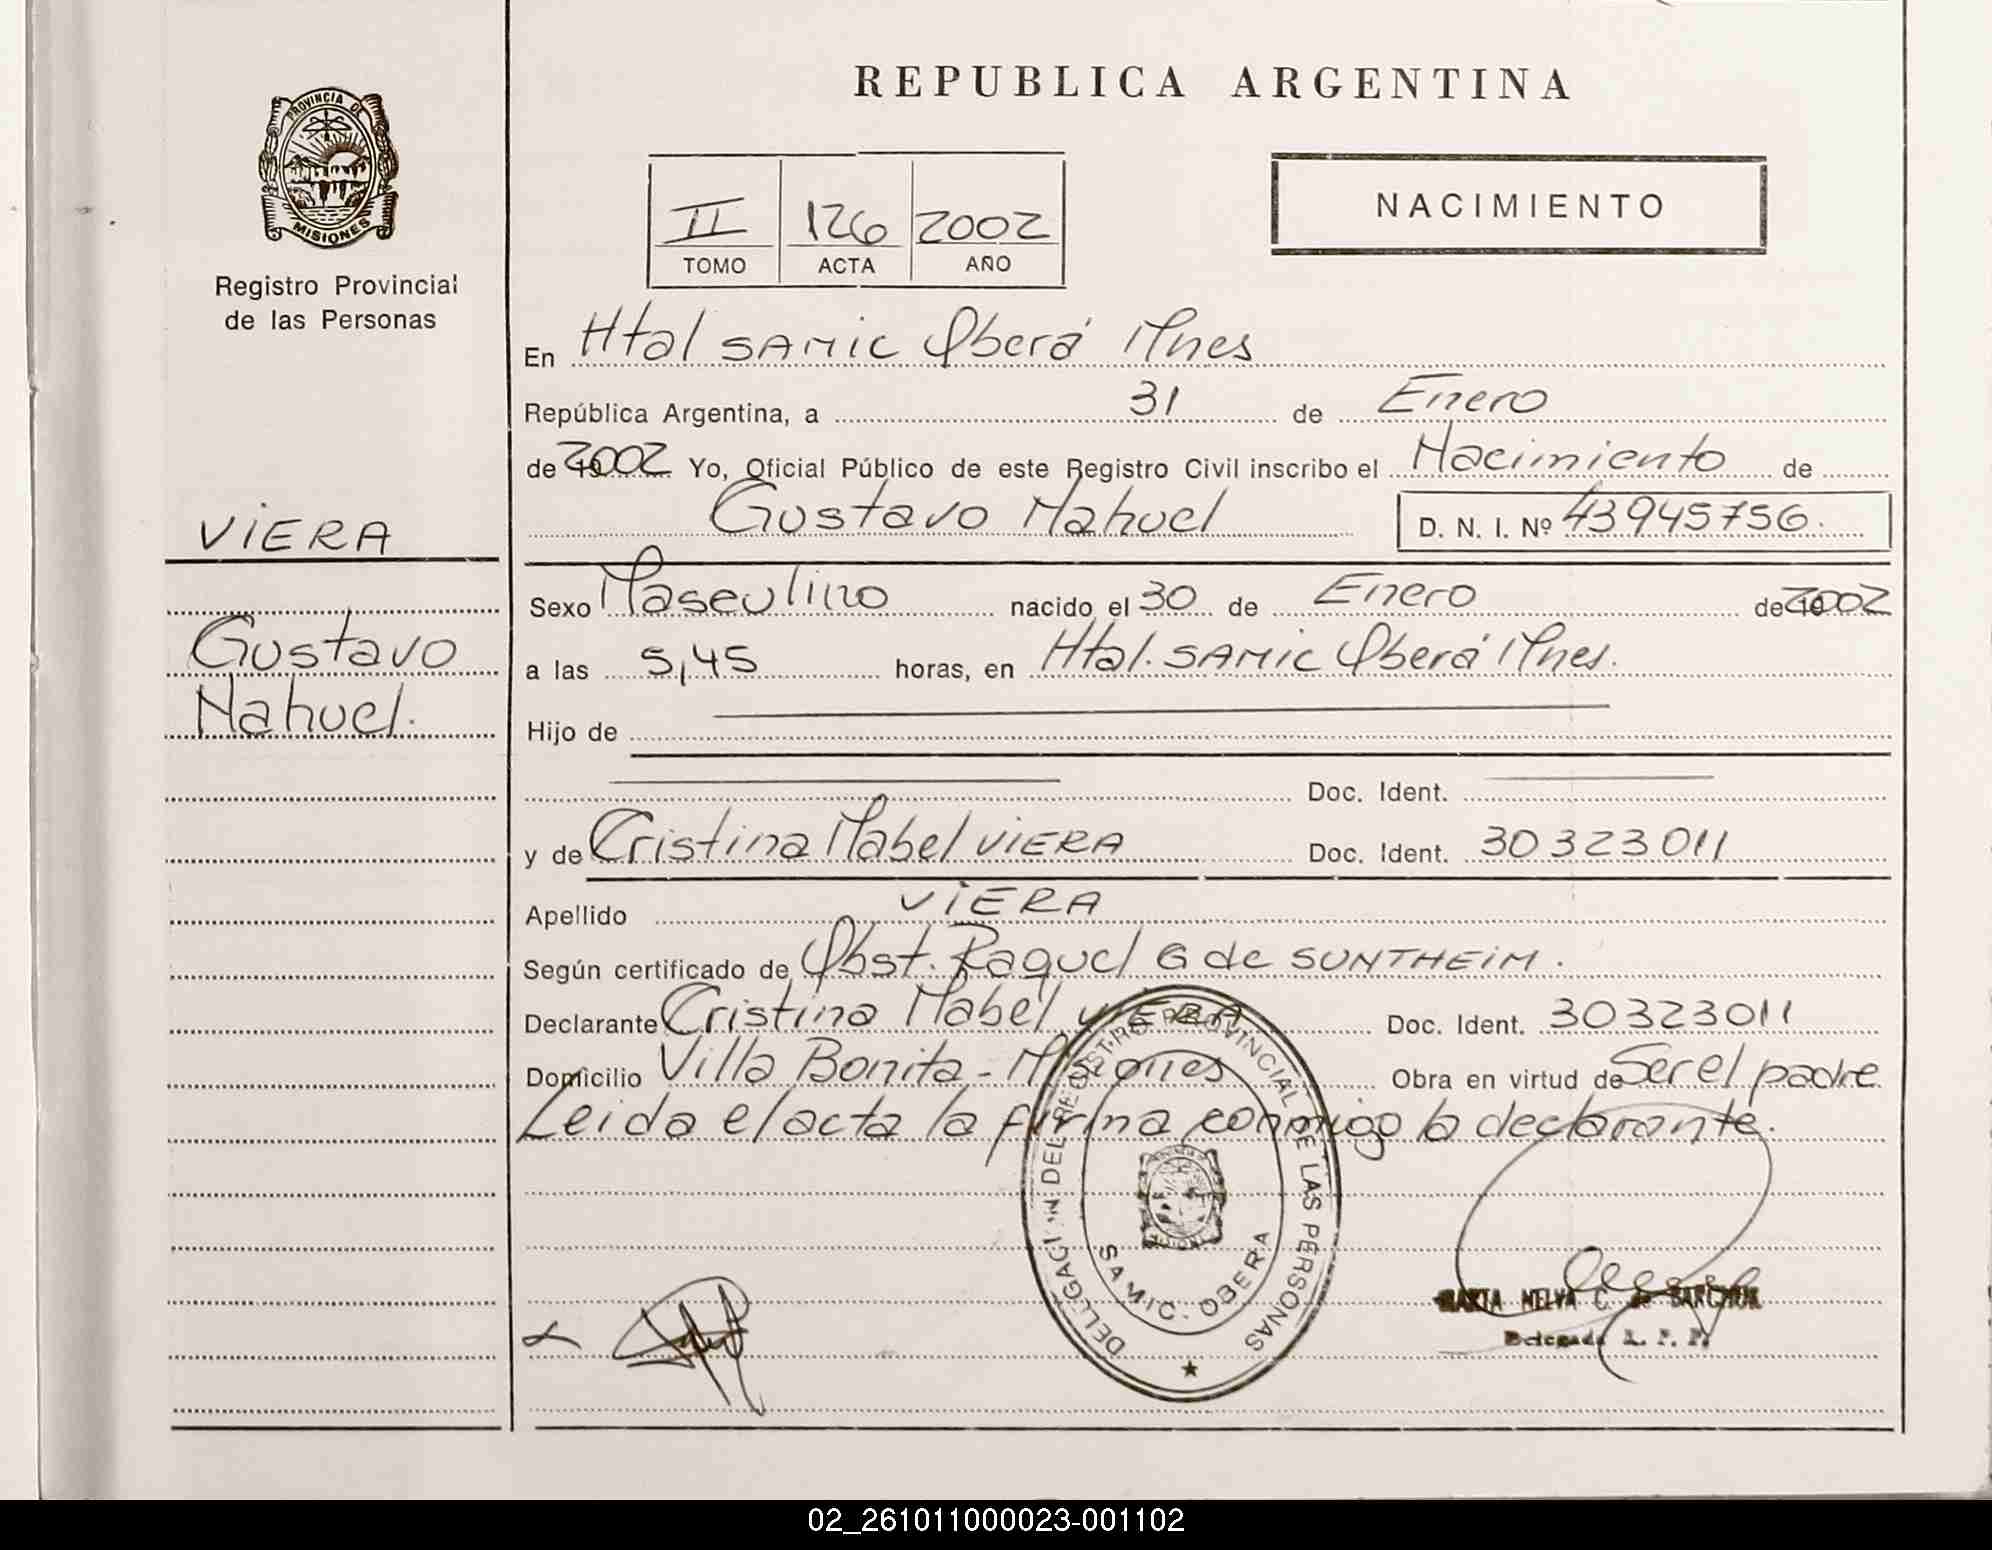 REPUBLICA ARGENTINA
PROVINCIA DE
MISIONES
Registro Provincial
de las Personas
II 126 2002
TOMO ACTA AÑO
NACIMIENTO
En Htal SAMIC Oberá Mnes
República Argentina, a 31 de Enero
de 2002 Yo, Oficial Público de este Registro Civil inscribo el Nacimiento de
Gustavo Nahuel D. N. I. Nº 43945756.
VIERA
Gustavo
Nahuel.
Sexo Masculino nacido el 30 de Enero de 2002
a las 5,45 horas, en Htal. SAMIC Oberá Mnes.
Hijo de
Doc. Ident.
y de Cristina Mabel VIERA Doc. Ident. 30323011
Apellido VIERA
Según certificado de Obst. Raquel G de SUNTHEIM.
Declarante Cristina Mabel VIERA Doc. Ident. 30323011
Domicilio Villa Bonita - Misiones Obra en virtud de Ser el padre
Leida el acta la firma conmigo la declarante.
DELEGACION DEL REGISTRO PROVINCIAL DE LAS PERSONAS
SAMIC - OBERA
MARTA NELVA C. de
Delegada R. P. P.
02_261011000023-001102